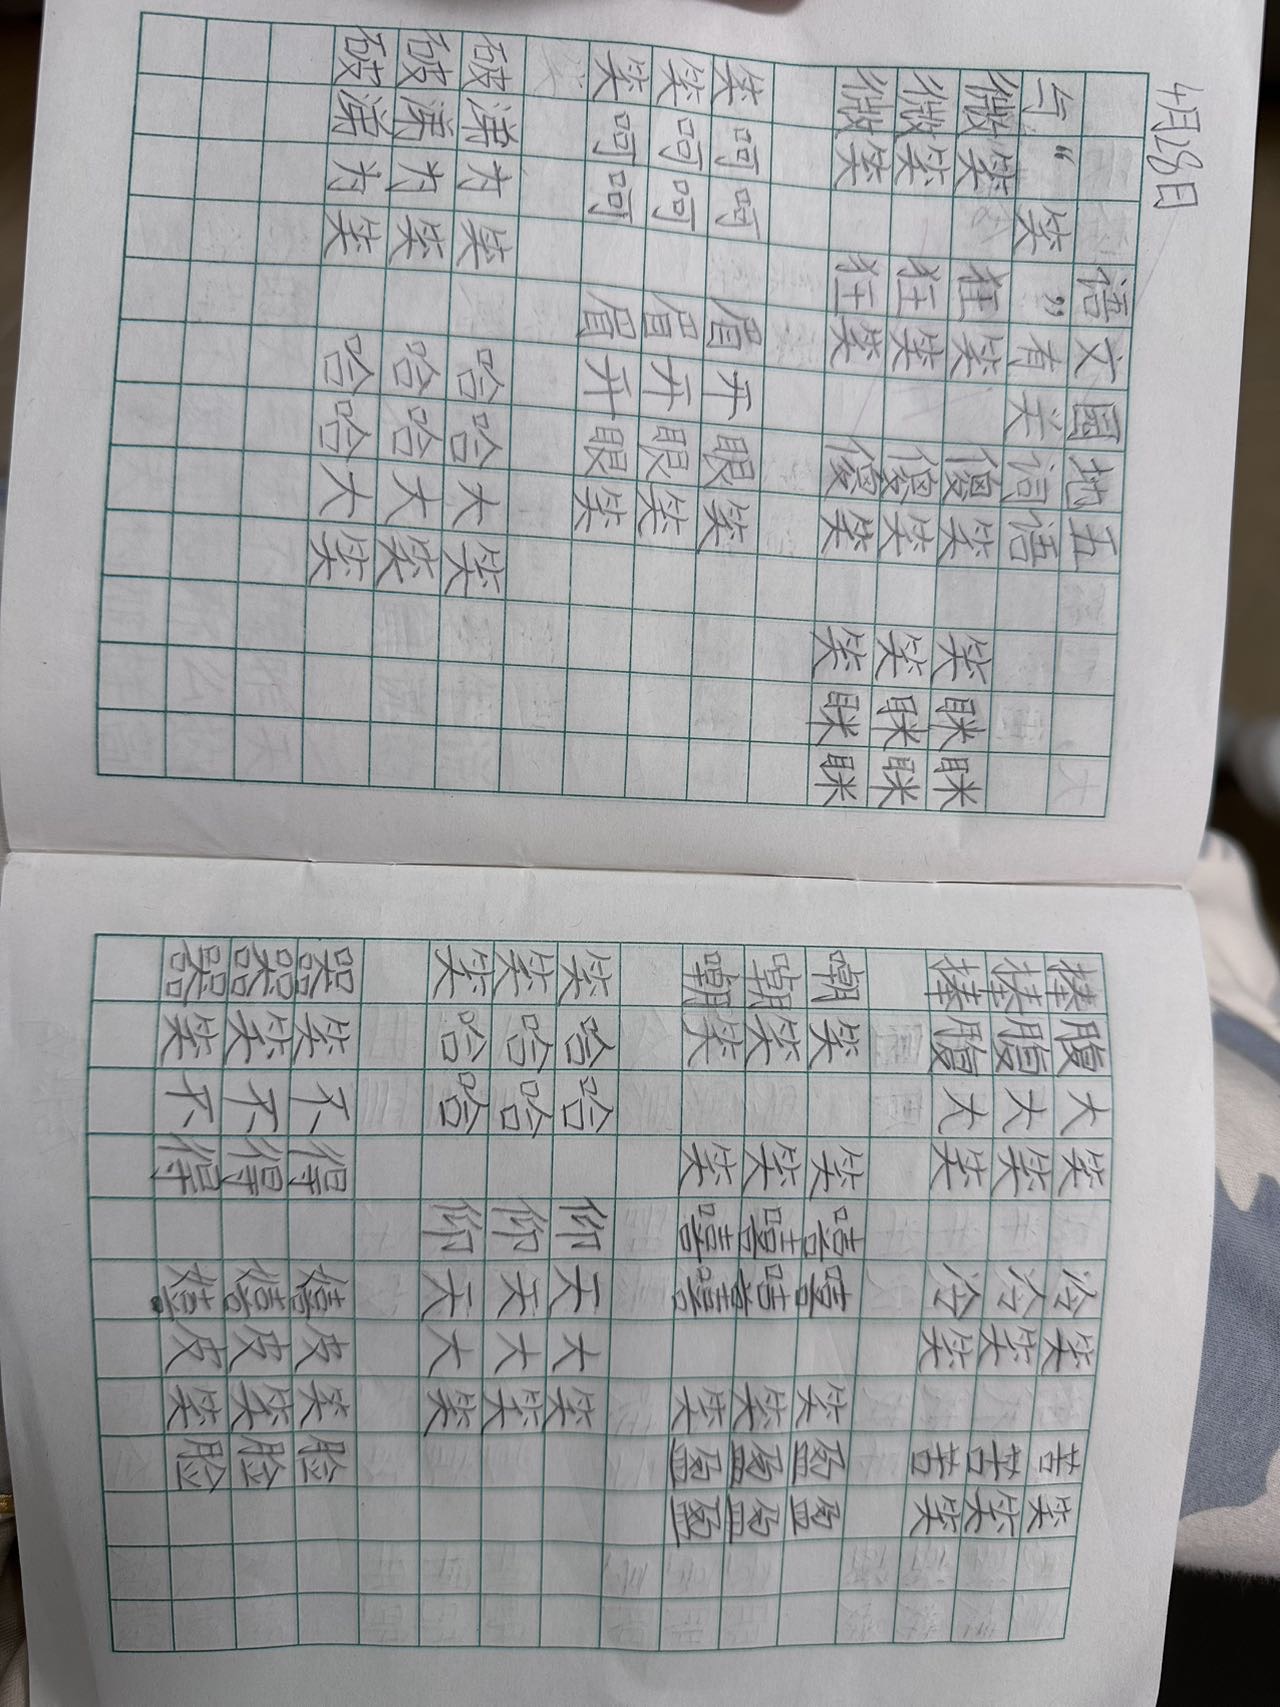 4月28日
语文园地五
与“笑”有关词语
微笑 狂笑 傻笑 笑眯眯
微笑 狂笑 傻笑 笑眯眯
微笑 狂笑 傻笑 笑眯眯
笑呵呵 眉开眼笑
笑呵呵 眉开眼笑
笑呵呵 眉开眼笑
破涕为笑 哈哈大笑
破涕为笑 哈哈大笑
破涕为笑 哈哈大笑
捧腹大笑 冷笑 苦笑
捧腹大笑 冷笑 苦笑
捧腹大笑 冷笑 苦笑
嘲笑 笑嘻嘻 笑盈盈
嘲笑 笑嘻嘻 笑盈盈
嘲笑 笑嘻嘻 笑盈盈
笑哈哈 仰天大笑
笑哈哈 仰天大笑
笑哈哈 仰天大笑
哭笑不得 嬉皮笑脸
哭笑不得 嬉皮笑脸
哭笑不得 嬉皮笑脸